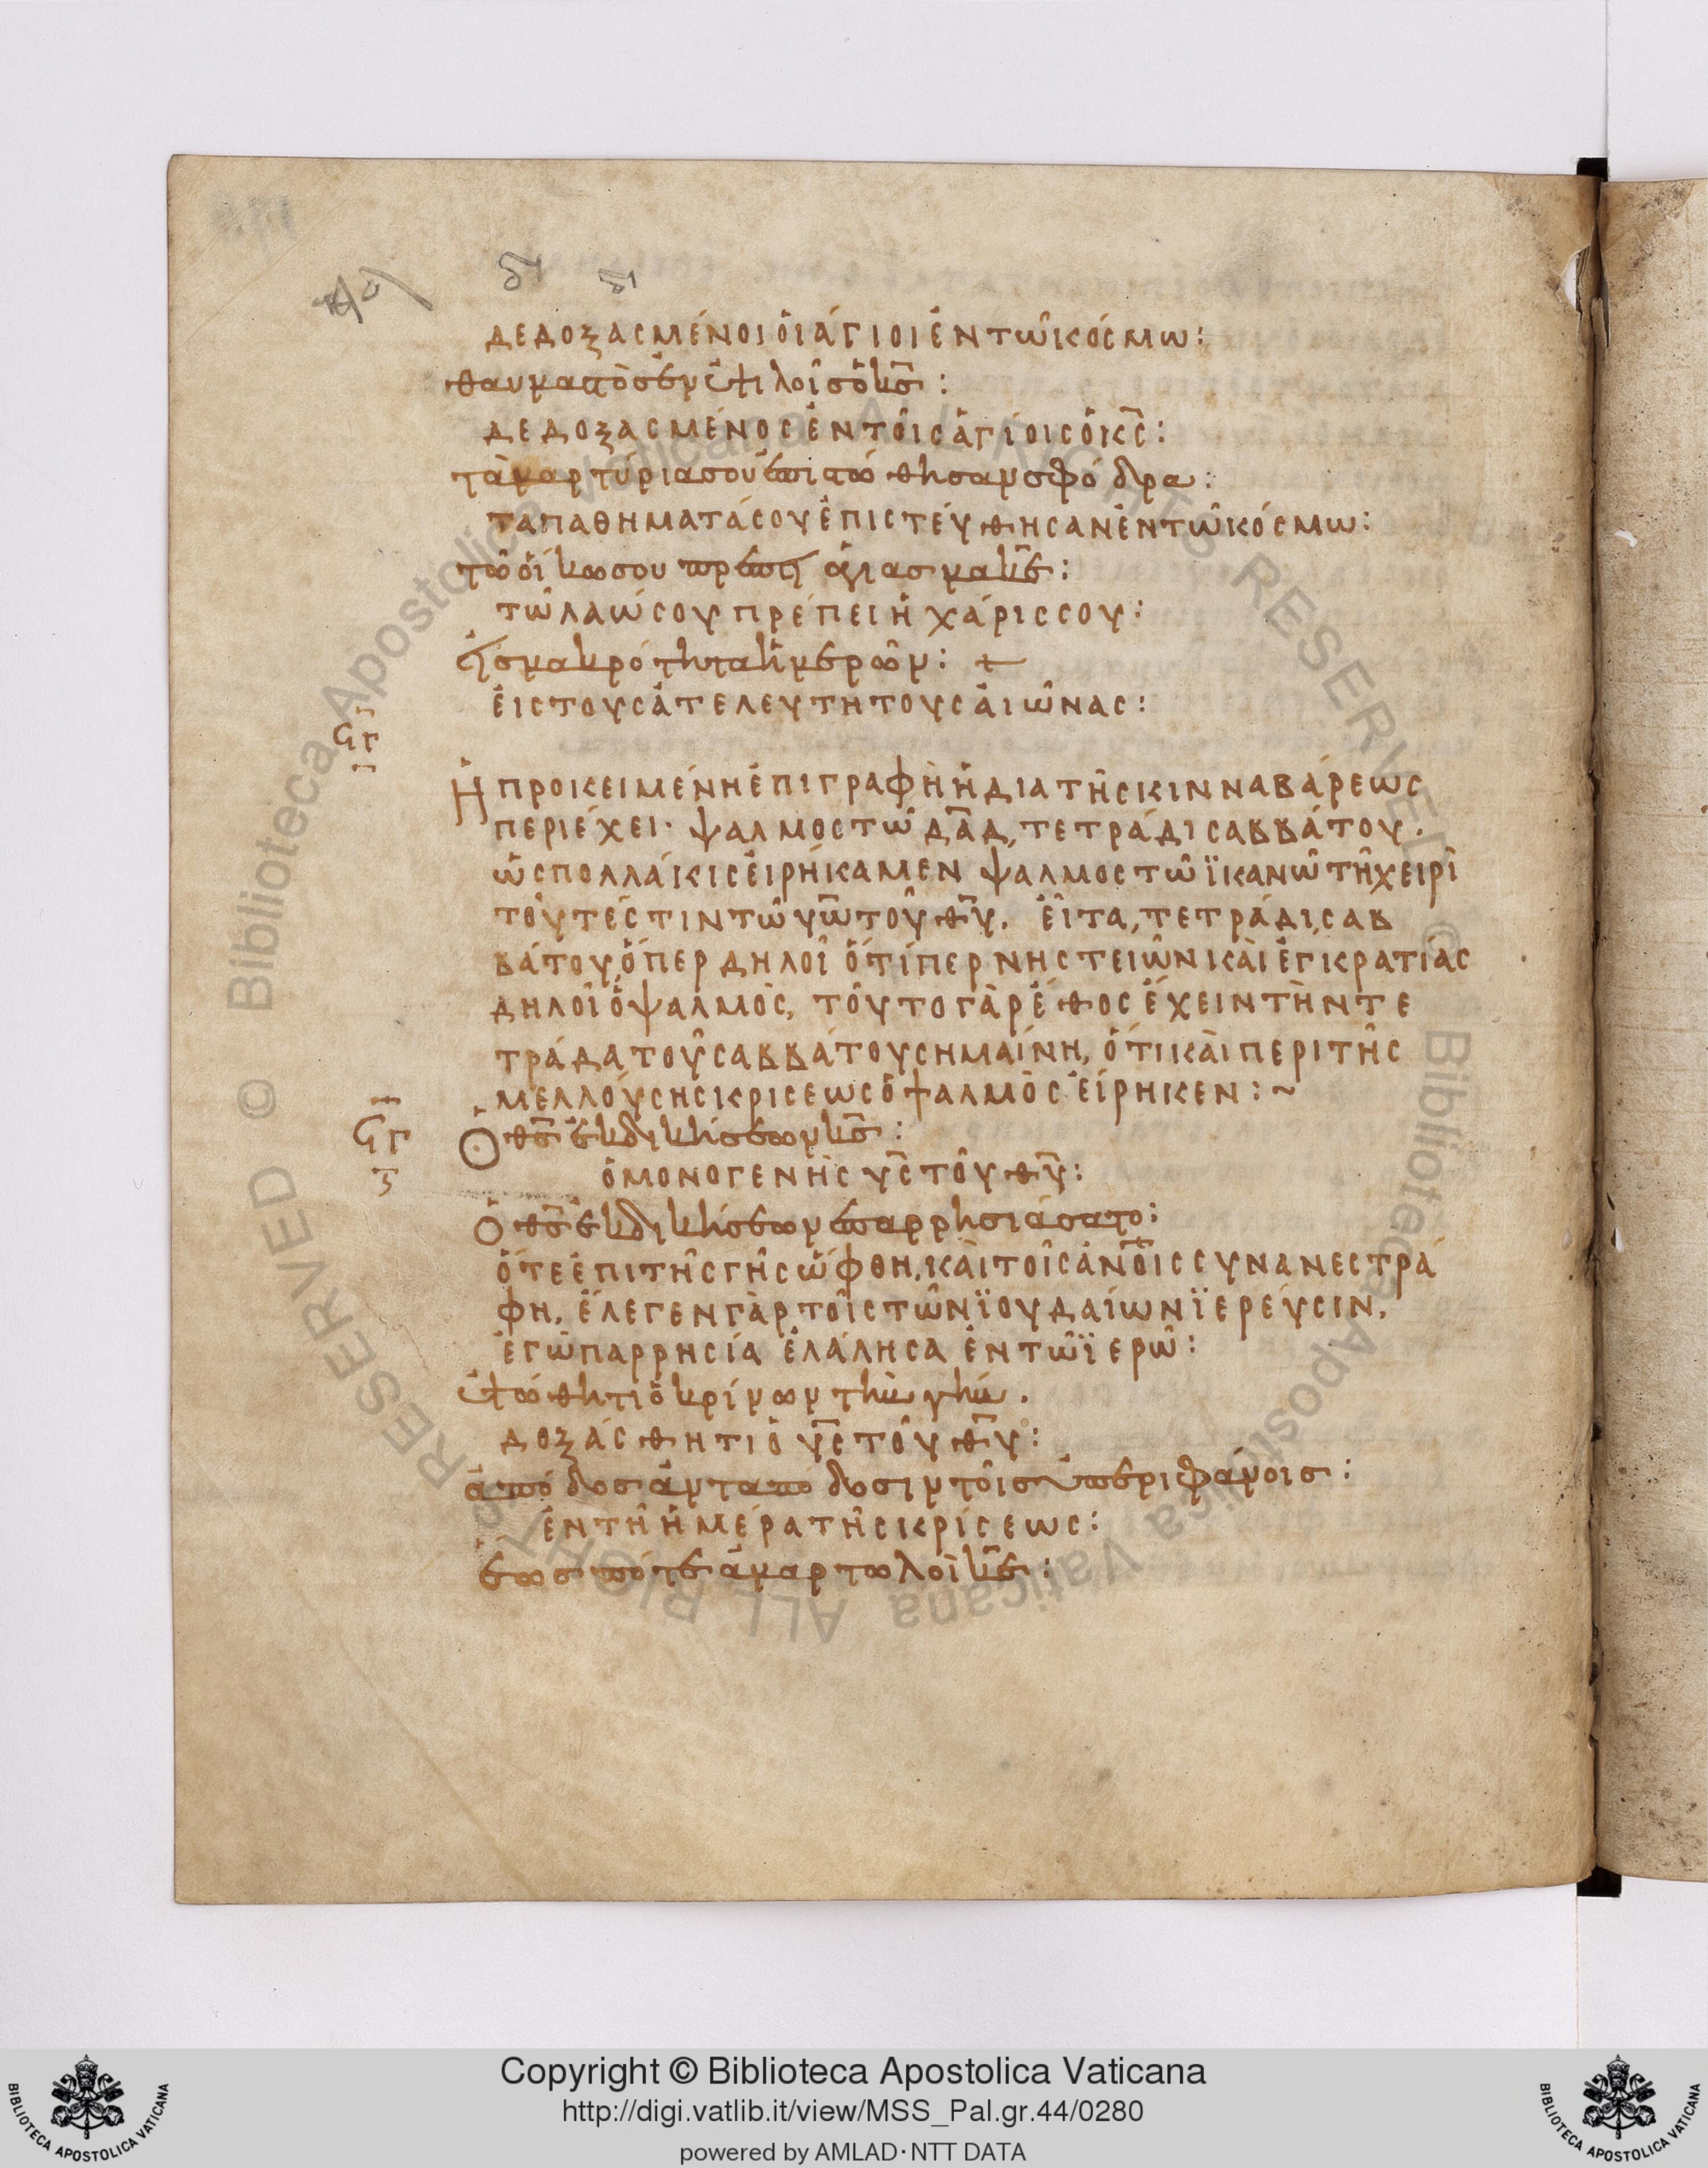 δεδοξασμένοι ὁι ἅγιοι ἐν τῶ κόσμω:
θαυμαστὸς ἐν ὑψιλοῖς ὁ κ̅ς̅:
δεδοξασμένος ἐν τοῖς ἁγίοις ὁ κ̅ς̅:
τὰ μαρτύρια σου ἐπιστώθησαν σφόδρα:
τα παθηματά σου ἐπιστεύθησαν ἐν τῶ κόσμω:
τῶ οἴκω σου πρέπει ἁγιασμα κ̅ε̅:
τῶ λαώ σου πρέπει ἡ χάρις σου:
εἰς μακρότητα ἡμερῶν: +
ἐις τους ἀτελευτήτους ἀιῶνας:
Ἡ προκειμένη ἐπιγραφὴ ἡ δια τῆς κινναβάρεως
περιέχει· ψαλμος τῶ δ̅α̅δ̅, τετράδι σαββάτου.
ὡς πολλάκις ἐιρήκαμεν ψαλμος τῶ ϊκανῶ τῆ χειρὶ
τούτέστιν τῶ υ̅ω̅ τοῦ θ̅υ̅. ἐῖτα, τετράδι, σαβ
βάτου, ὅπερ δηλοῖ ὅτί περ νηστειῶν κὰι ἐγκρατίας
δηλοῖ ὁ ψαλμὸς, τοῦτο γὰρ ἔθος ἔχειν τὴν τε
τράδα τοῦ σαββάτου σημαίνη, ὅτι κὰι περι τῆς
μελλούσης κρίσεως ὁ ψαλμὸς εἴρηκεν: ~
Ὁ θ̅ς̅ ἐκδικήσεων κ̅ς̅:
ὁ μονογενὴς υ̅ς̅ τοῦ θ̅υ̅:
Ὁ θ̅ς̅ ἐκδικήσεων ἐπαρρησιάσατο:
ὅτε ἐπι τῆς γῆς ὤφθη, κὰι τοῖς ἀν̅ο̅ις συνανεστρά
φη, ἔλεγεν γὰρ τοῖς τῶν ϊουδαίων ϊερεύσιν,
ἐγὼ παρρησία ἐλάλησα ἐν τῶ ϊερῶ:
ὑψώθητι ὁ κρίνων τὴν γήν.
δοξάσθητι ὁ υ̅ς̅ τοῦ θ̅υ̅:
ἀπόδος ἀνταποδοσιν τοῖς ὑπεριφάνοις:
ἐν τῆ ἡμέρα τῆς κρίσεως:
ἕως πότε ἁμαρτωλοὶ κ̅ε̅:
Copyright © Biblioteca Apostolica Vaticana
http://digi.vatlib.it/view/MSS_Pal.gr.44/0280
powered by AMLAD·NTT DATA